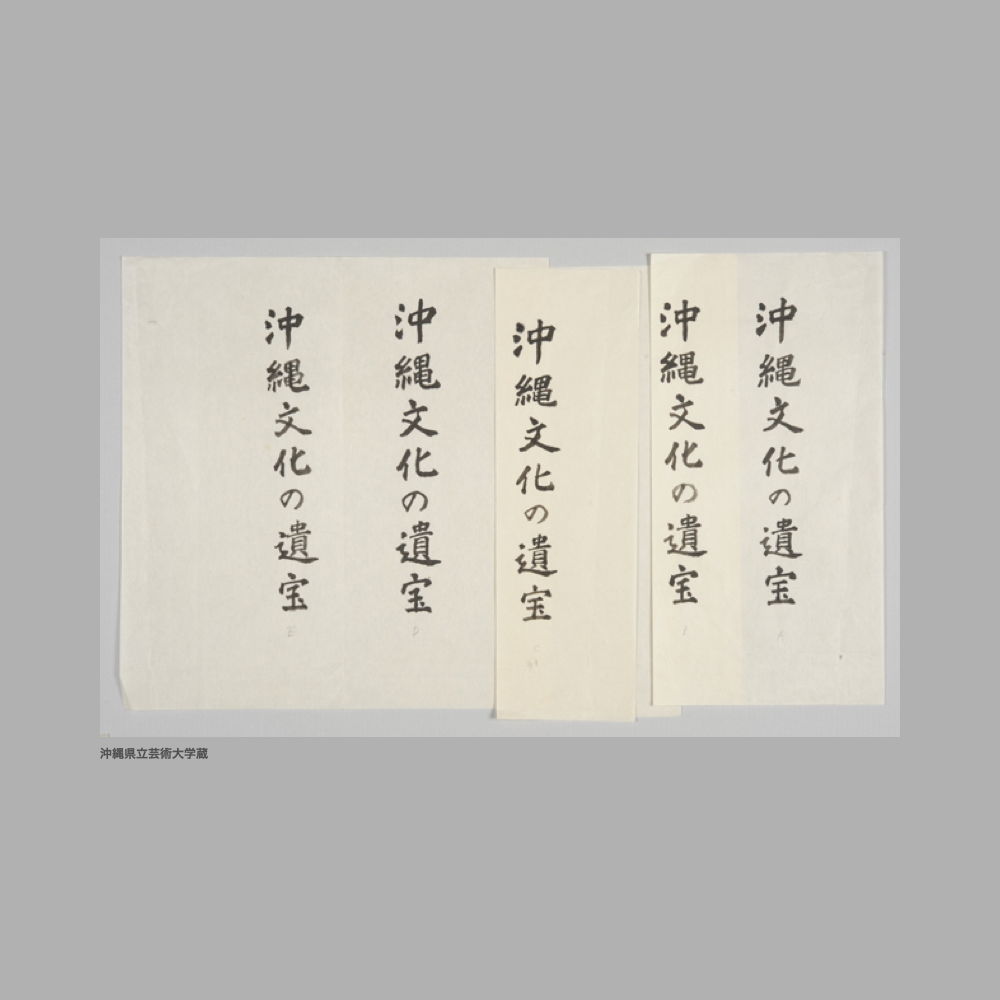 沖縄文化の遺宝
沖縄文化の遺宝
沖縄文化の遺宝
沖縄文化の遺宝
沖縄文化の遺宝
沖縄県立芸術大学蔵